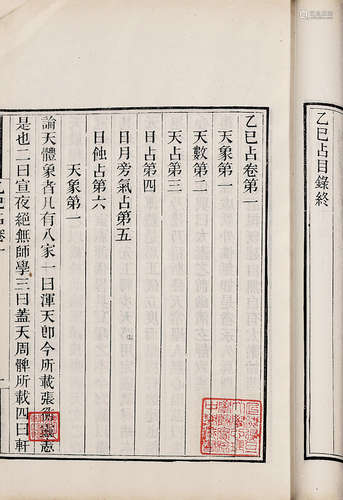 乙巳占目錄終
乙巳占卷第一
天象第一
天數第二
天占第三
日占第四
日月旁氣占第五
日蝕占第六
天象第一
論天體象者凡有八家一曰渾天卽今所載張衡靈憲
是也二曰宣夜絕無師學三曰蓋天周髀所載四曰軒
乙巳占卷一